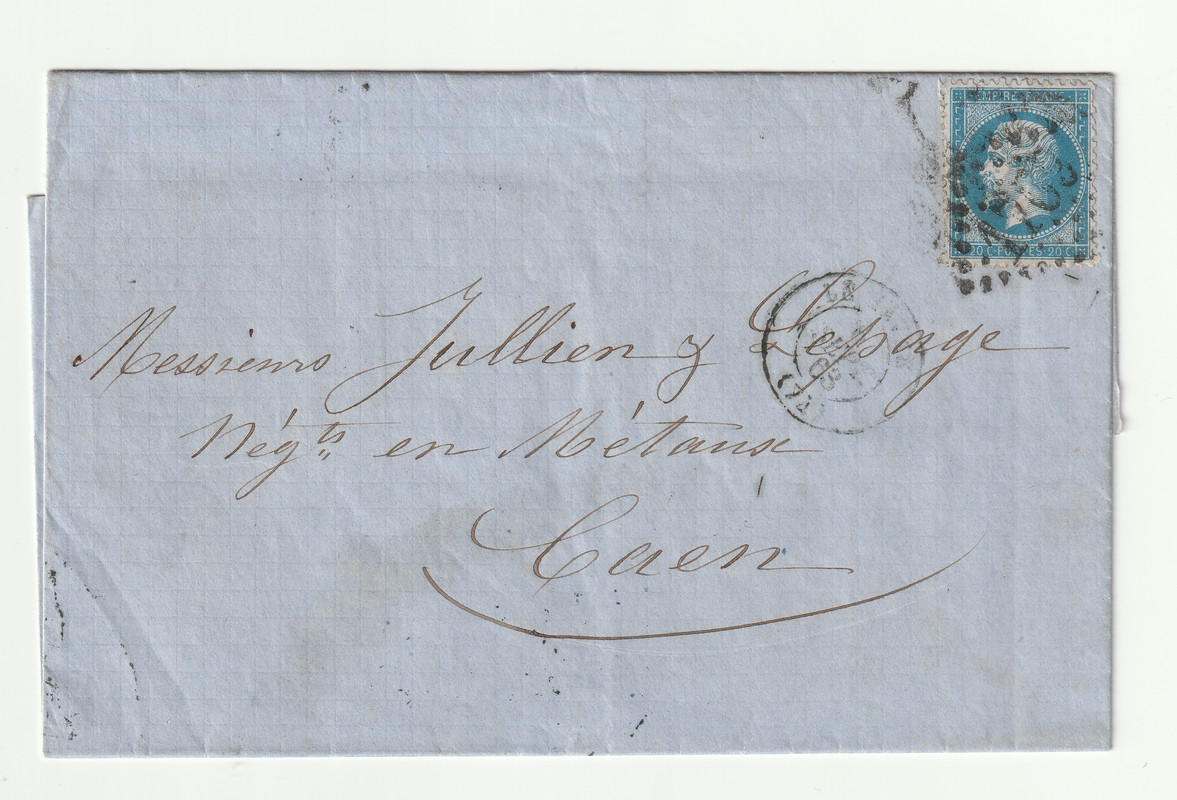 EMPIRE FRANC
20 C POSTES 20 C
Messieurs Jullien & Lepage
Négts en Métaux
Caen
LE
(74)